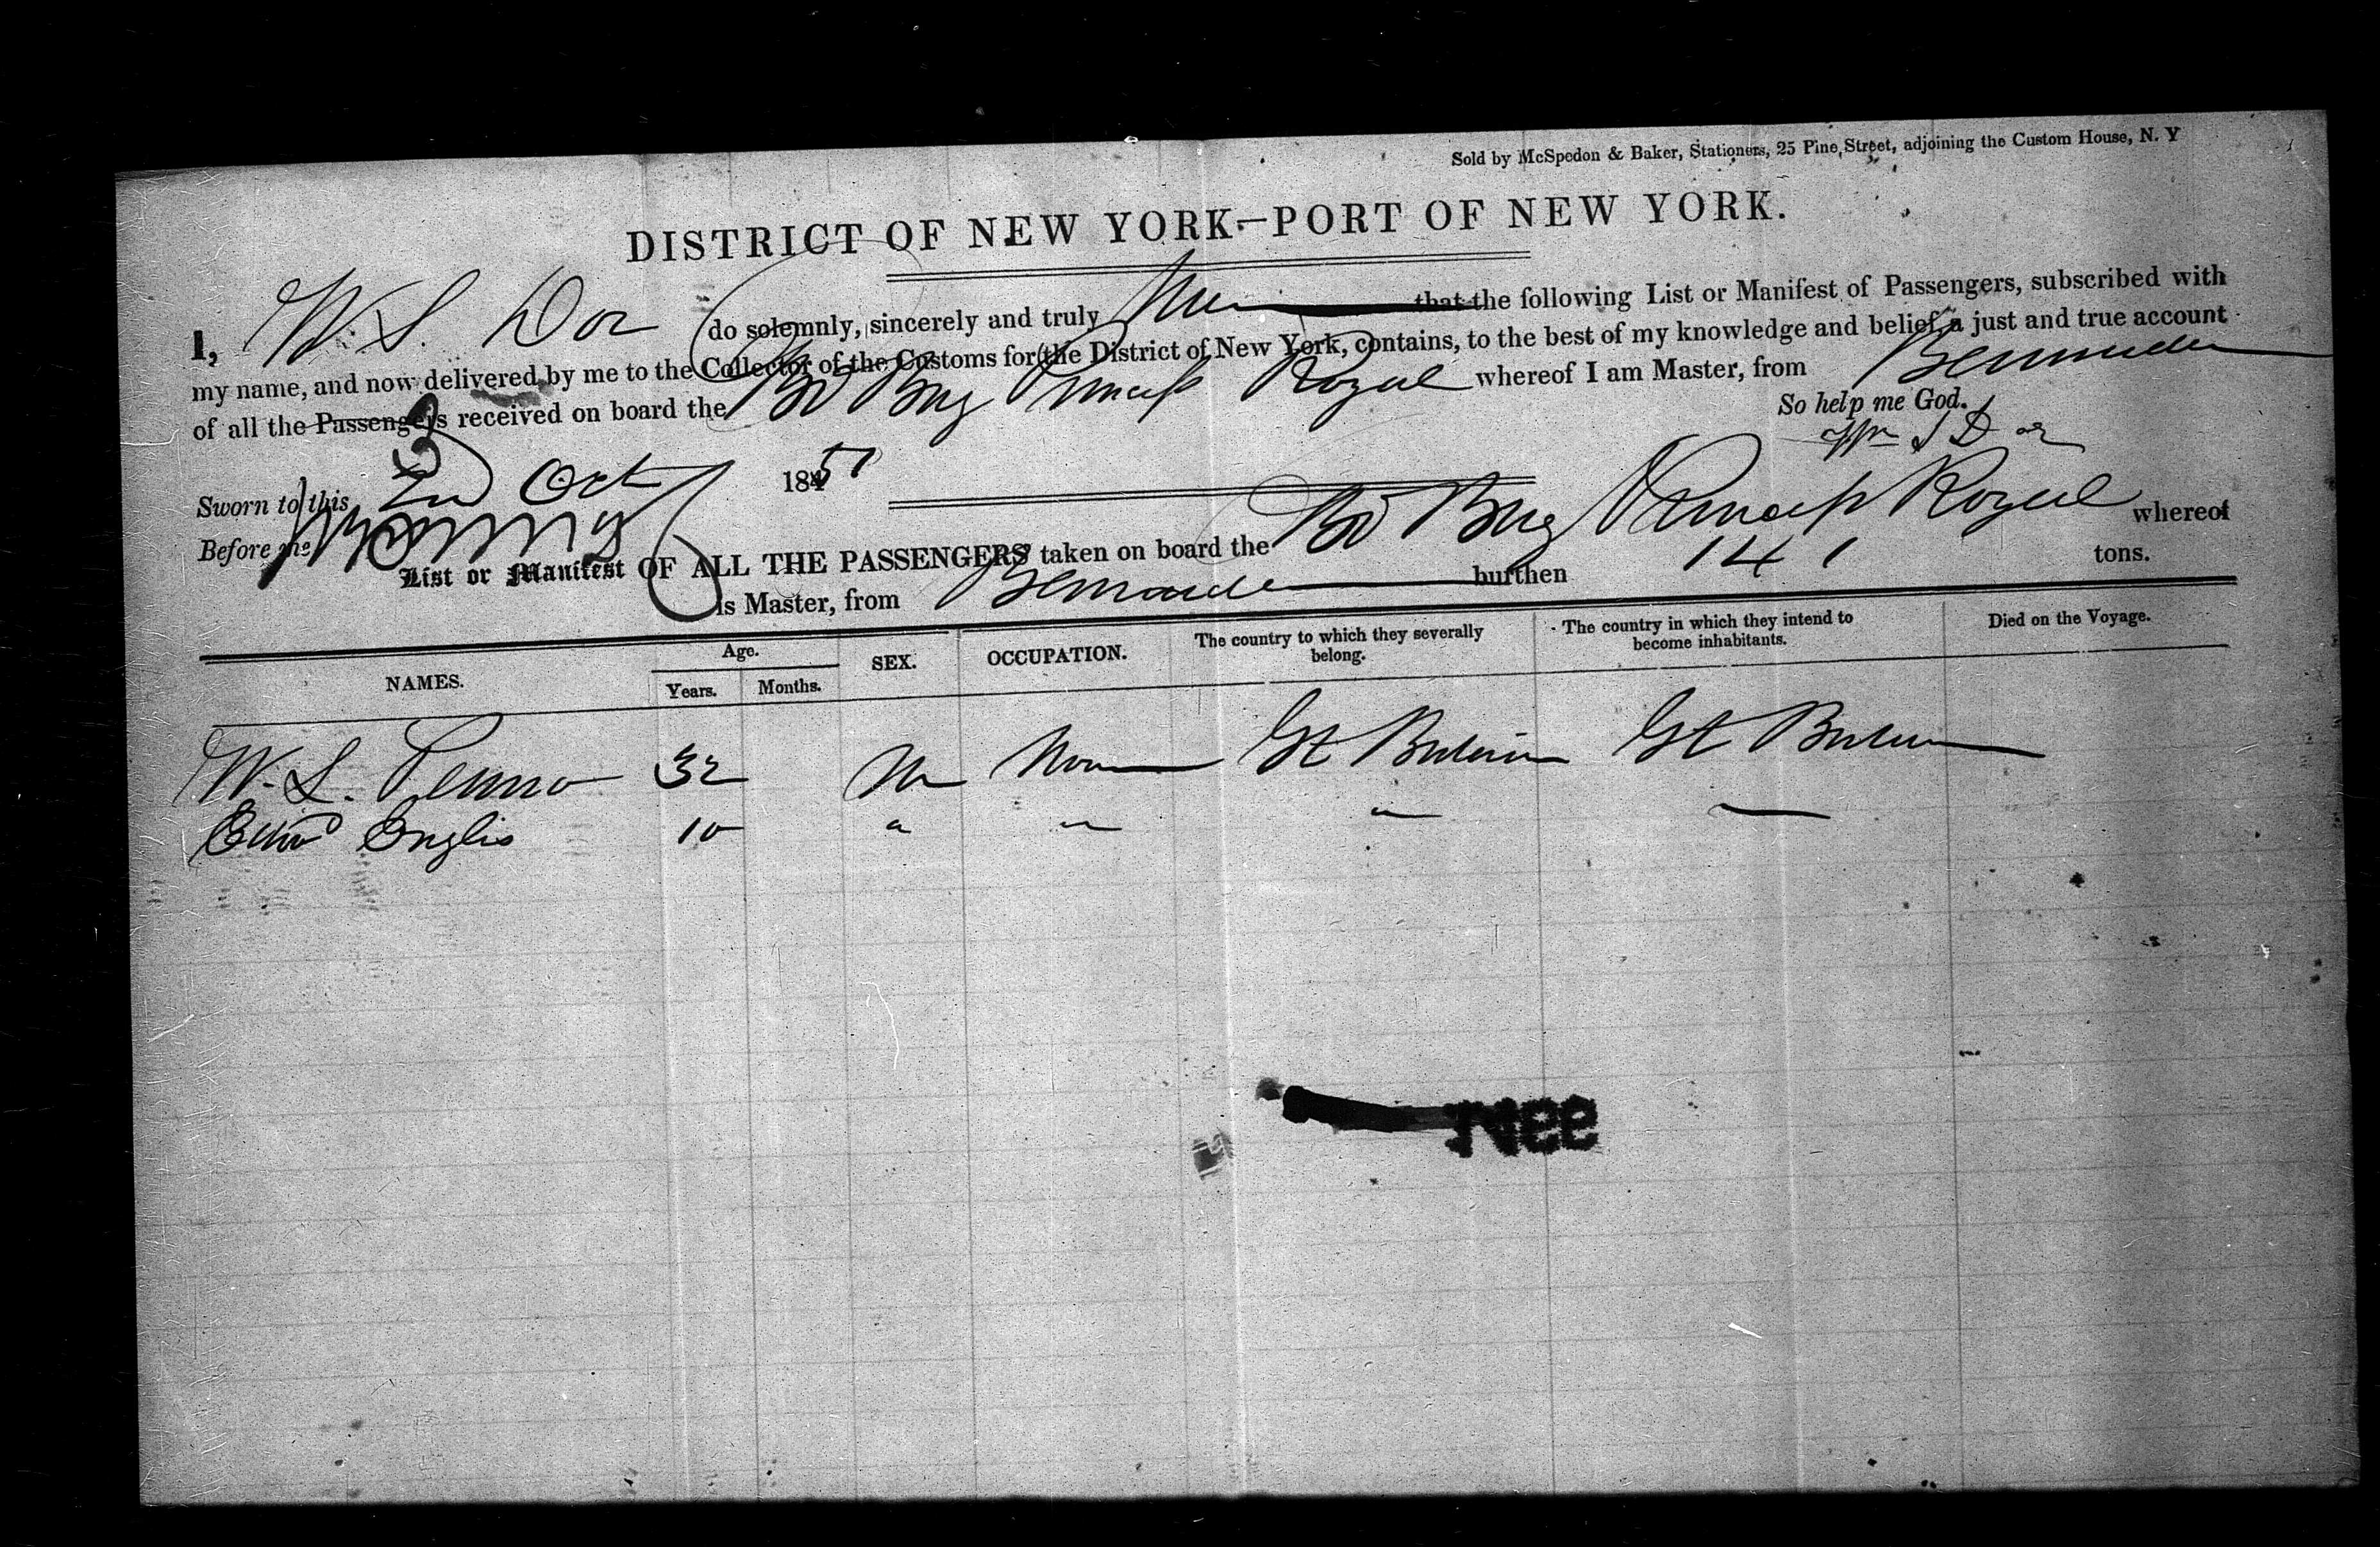 Sold by McSpedon & Baker, Stationers, 25 Pine Street, adjoining the Custom House, N. Y
DISTRICT OF NEW YORK—PORT OF NEW YORK.
I, W. S. Dor do solemnly, sincerely and truly that the following List or Manifest of Passengers, subscribed with
my name, and now delivered by me to the Collector of the Customs for the District of New York, contains, to the best of my knowledge and belief, a just and true account
of all the Passengers received on board the Br Brig Princess Royal whereof I am Master, from Bermuda
So help me God.
Wm S Dor
Sworn to this 2d Oct 1851
Before me
List or Manifest OF ALL THE PASSENGERS taken on board the Br Brig Princess Royal whereof
is Master, from Bermuda burthen 141 tons.
NAMES. Age. Years. Months. SEX. OCCUPATION. The country to which they severally belong. The country in which they intend to become inhabitants. Died on the Voyage.
W. S. Penno 32 M None Gt Britain Gt Britain
Edwd Englis 10 " " "